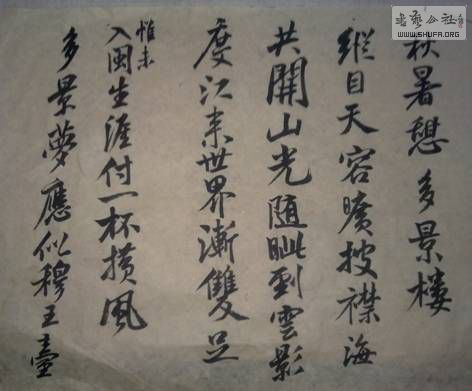 秋暑憩多景楼
縱目天容曠披襟海
共開山光随眦到雲影
度江来世界漸雙足
惟未
入閩生涯付一杯横風
多景夢應似穆王臺
书艺公社
WWW.SHUFA.ORG